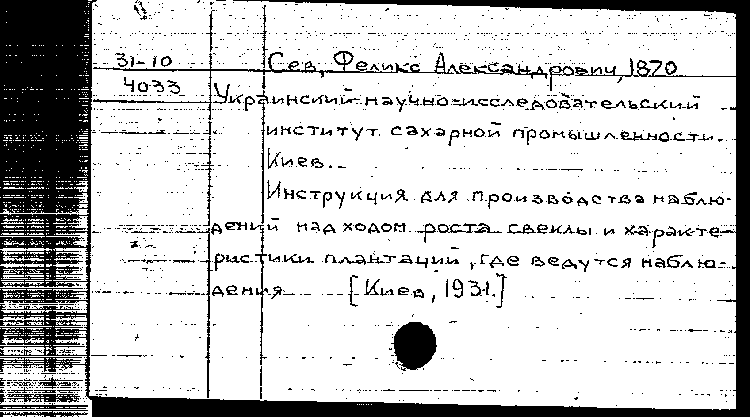 31-10 Сев, Феликс Александрович, 1870
4033 Украинский научно-исследовательский
институт сахарной промышленности.
Киев.
Инструкция для производства наблю-
дений над ходом роста свеклы и характе-
ристики плантаций, где ведутся наблю-
дения [Киев, 1931.]